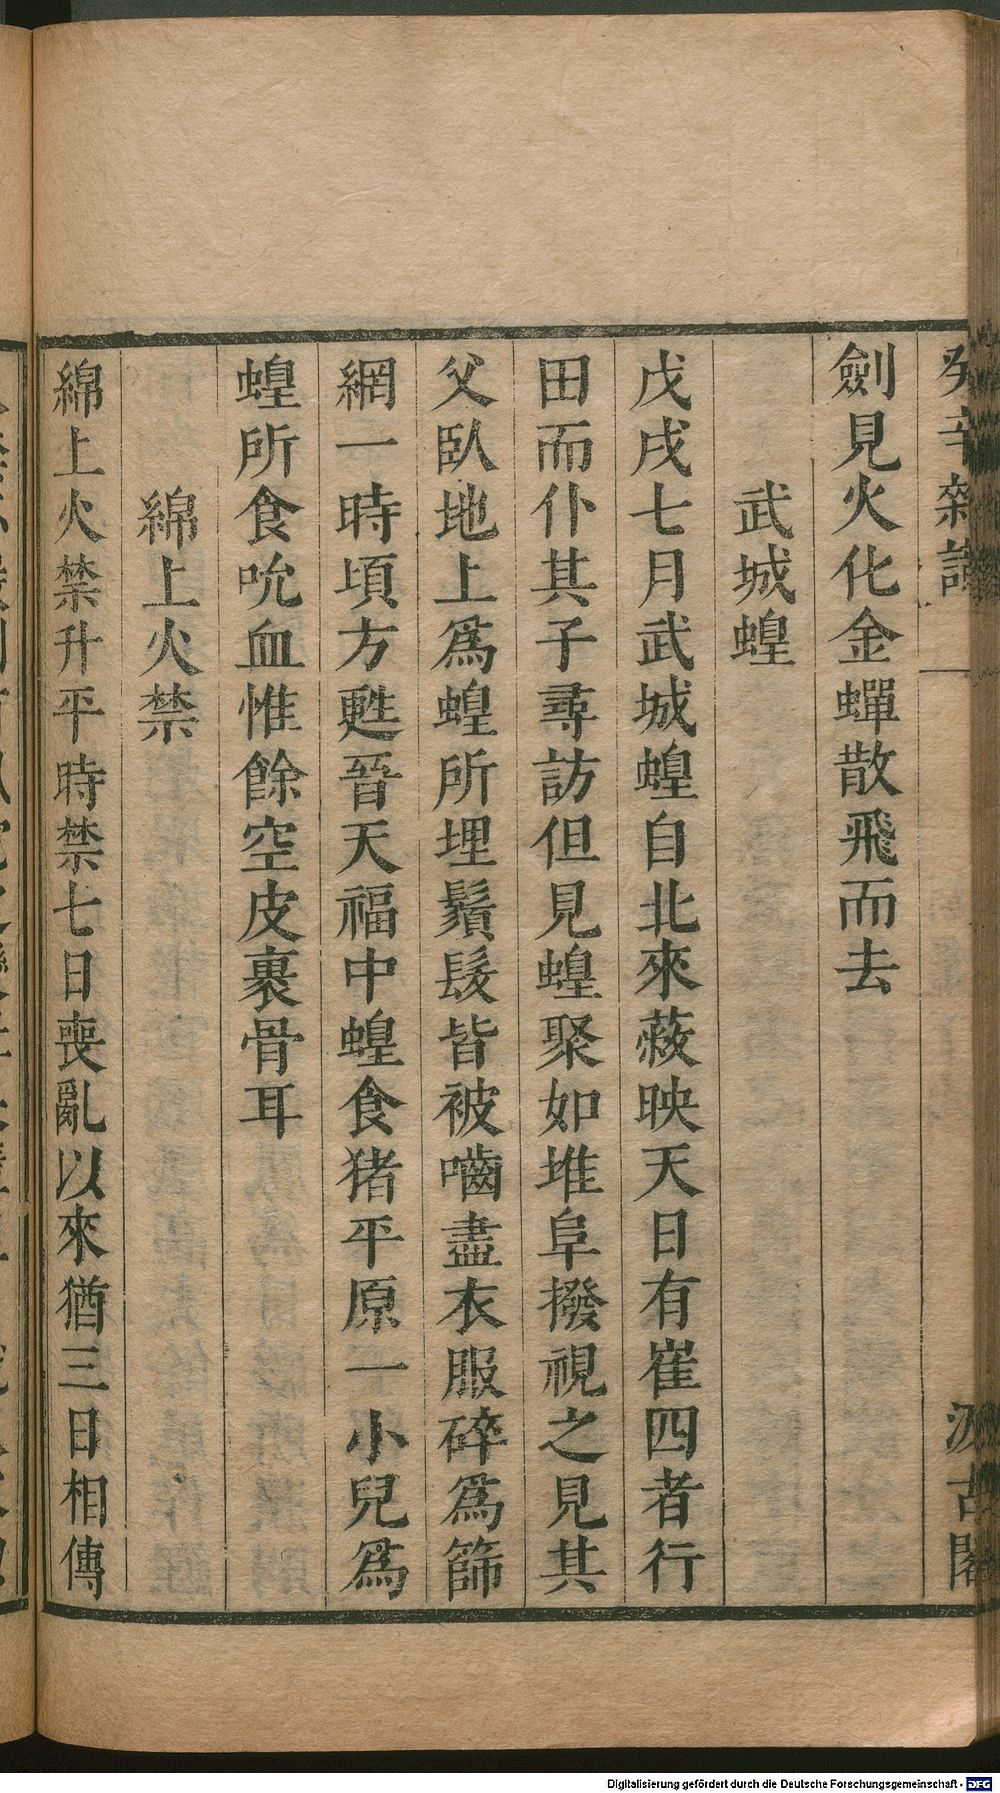 癸辛雜識
汲古閣
劍見火化金蟬散飛而去
武城蝗
戊戌七月武城蝗自北來蔽映天日有崔四者行
田而仆其子尋訪但見蝗聚如堆阜撥視之見其
父臥地上爲蝗所埋鬚髮皆被嚙盡衣服碎爲篩
網一時頃方甦晉天福中蝗食猪平原一小兒爲
蝗所食吮血惟餘空皮裹骨耳
綿上火禁
綿上火禁升平時禁七日喪亂以來猶三日相傳
Digitalisierung gefördert durch die Deutsche Forschungsgemeinschaft - DFG